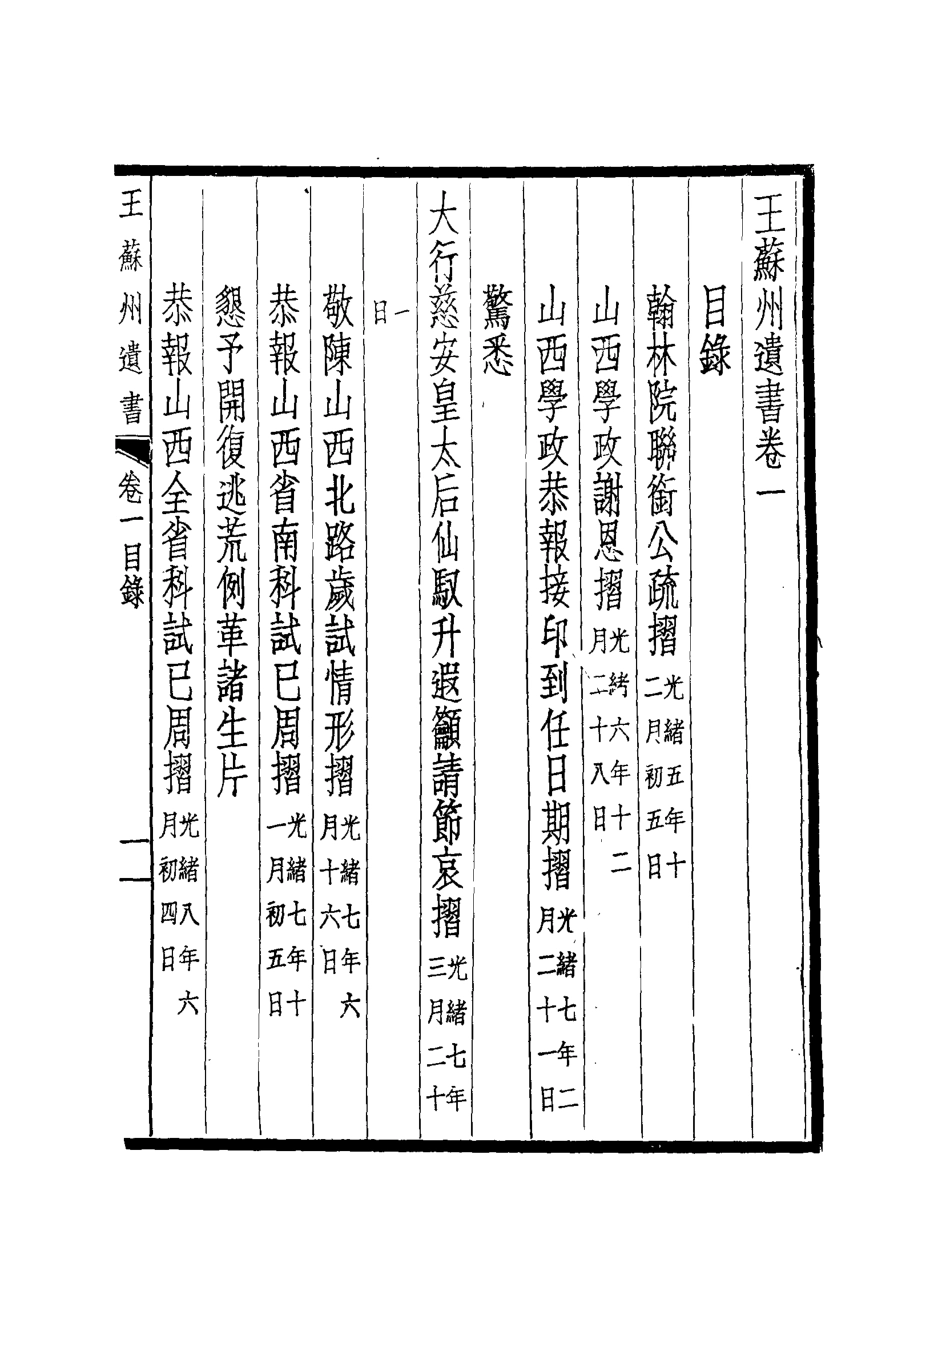 王蘇州遺書卷一
目錄
翰林院聯銜公疏摺光緒五年十二月初五日
山西學政謝恩摺光緒六年十二月二十八日
山西學政恭報接印到任日期摺光緒七年二月二十一日
驚悉
大行慈安皇太后仙馭升遐籲請節哀摺光緒七年三月二十
一日
敬陳山西北路歲試情形摺光緒七年六月十六日
恭報山西省南科試已周摺光緒七年十一月初五日
懇予開復逃荒例革諸生片
恭報山西全省科試已周摺光緒八年六月初四日
王蘇州遺書 卷一目錄 一